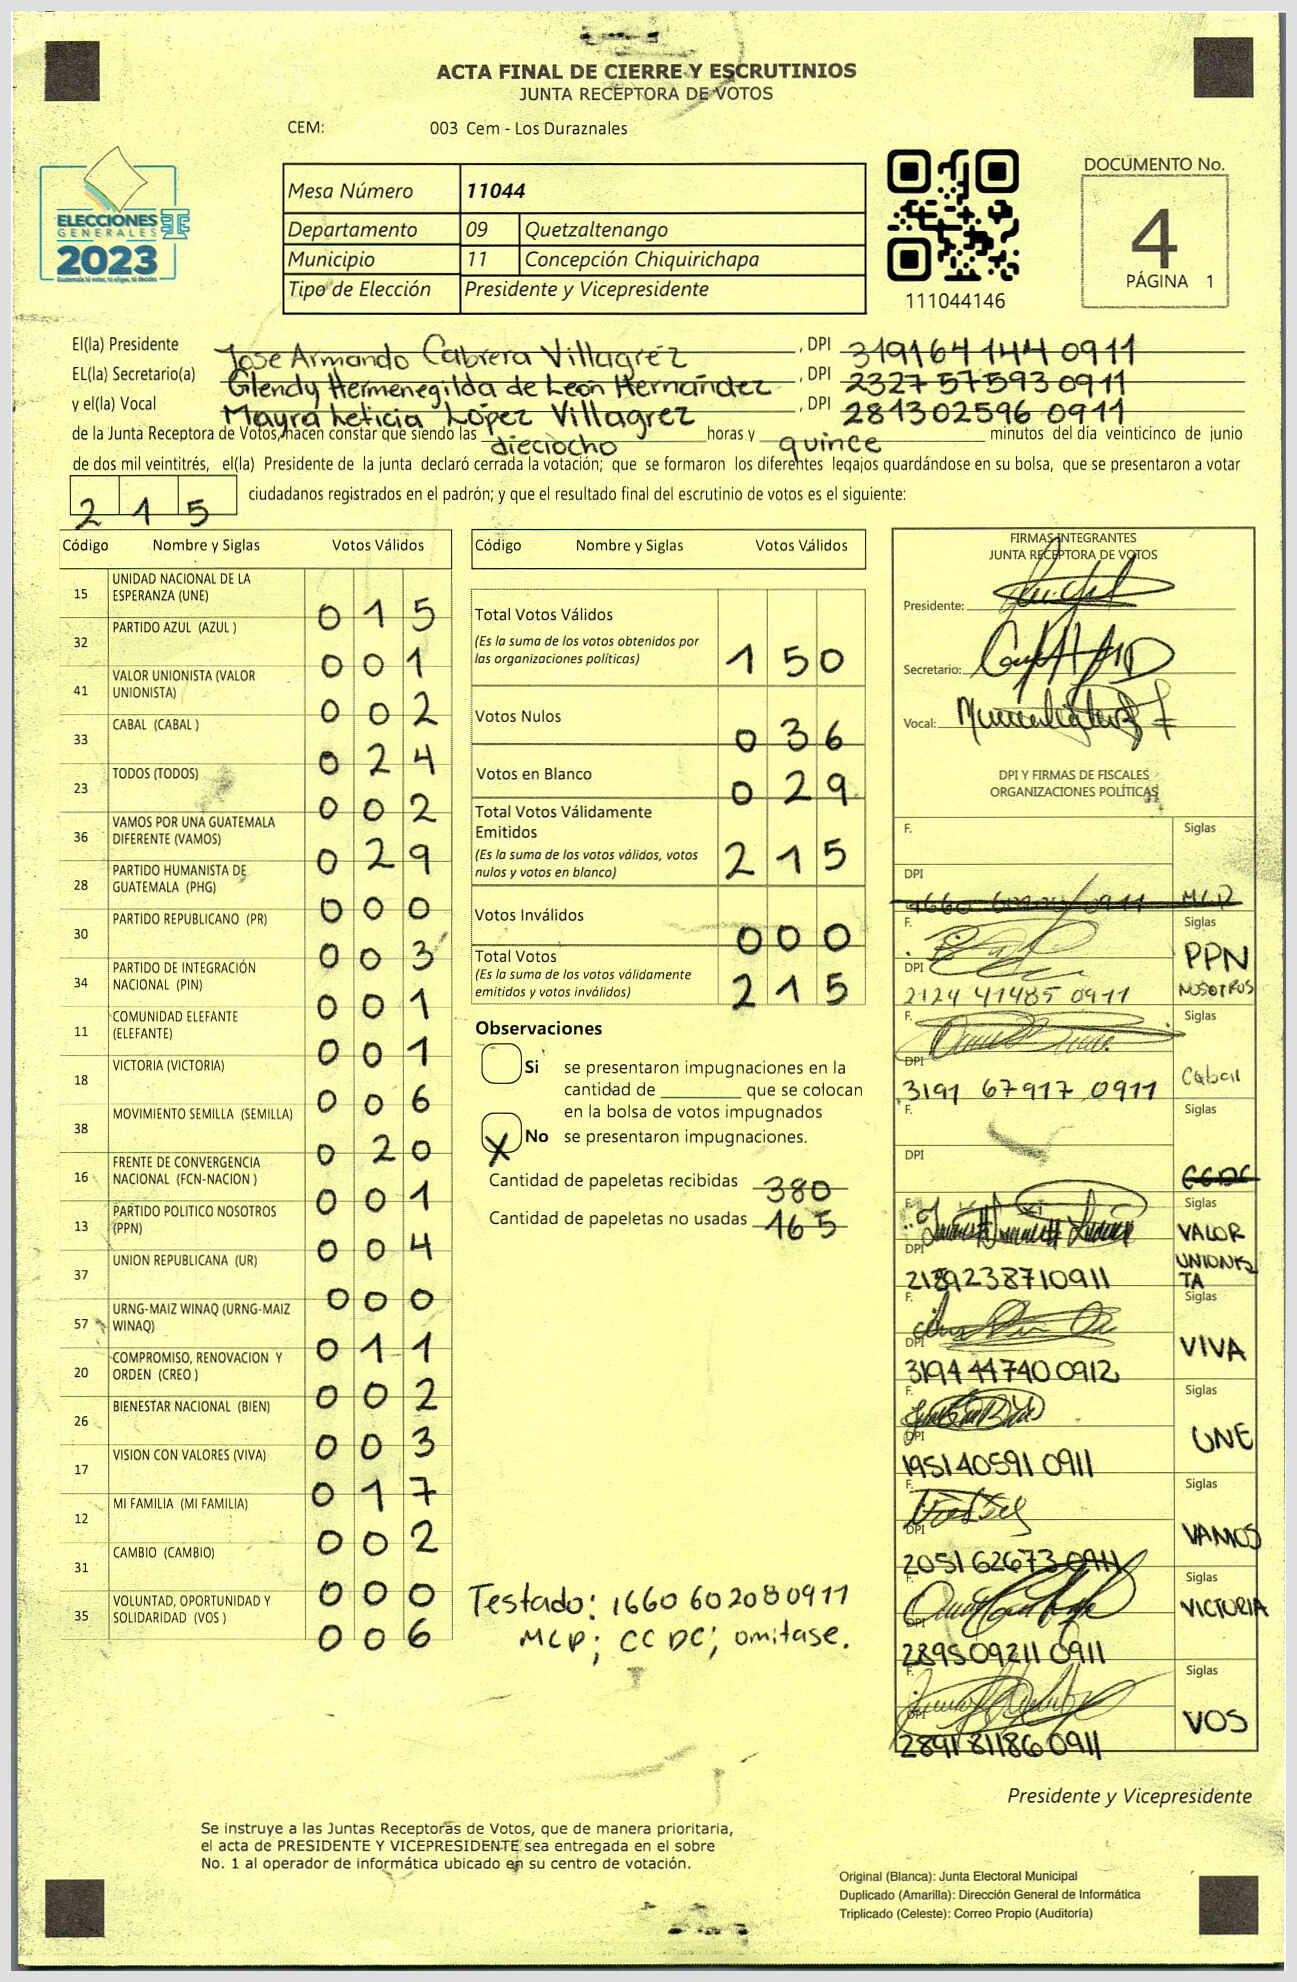 ACTA FINAL DE CIERRE Y ESCRUTINIOS
JUNTA RECEPTORA DE VOTOS
CEM: 003 Cem - Los Duraznales
ELECCIONES
GENERALES
2023
Guatemala tú votas, tú eliges, tú decides
Mesa Número 11044
Departamento 09 Quetzaltenango
Municipio 11 Concepción Chiquirichapa
Tipo de Elección Presidente y Vicepresidente
111044146
DOCUMENTO No.
4
PÁGINA 1
El(la) Presidente Jose Armando Cabrera Villagrez, DPI 319164144 0911
EL(la) Secretario(a) Glendy Hermenegilda de León Hernández, DPI 2327 57593 0911
y el(la) Vocal Mayra Leticia López Villagrez, DPI 281302596 0911
de la Junta Receptora de Votos, hacen constar que siendo las dieciocho horas y quince minutos del día veinticinco de junio
de dos mil veintitrés, el(la) Presidente de la junta declaró cerrada la votación; que se formaron los diferentes legajos guardándose en su bolsa, que se presentaron a votar
215 ciudadanos registrados en el padrón; y que el resultado final del escrutinio de votos es el siguiente:
Código Nombre y Siglas Votos Válidos
15 UNIDAD NACIONAL DE LA ESPERANZA (UNE) 015
32 PARTIDO AZUL (AZUL ) 001
41 VALOR UNIONISTA (VALOR UNIONISTA) 002
33 CABAL (CABAL ) 024
23 TODOS (TODOS) 002
36 VAMOS POR UNA GUATEMALA DIFERENTE (VAMOS) 029
28 PARTIDO HUMANISTA DE GUATEMALA (PHG) 000
30 PARTIDO REPUBLICANO (PR) 003
34 PARTIDO DE INTEGRACIÓN NACIONAL (PIN) 001
11 COMUNIDAD ELEFANTE (ELEFANTE) 001
18 VICTORIA (VICTORIA) 006
38 MOVIMIENTO SEMILLA (SEMILLA) 020
16 FRENTE DE CONVERGENCIA NACIONAL (FCN-NACION ) 001
13 PARTIDO POLITICO NOSOTROS (PPN) 004
37 UNION REPUBLICANA (UR) 000
57 URNG-MAIZ WINAQ (URNG-MAIZ WINAQ) 011
20 COMPROMISO, RENOVACION Y ORDEN (CREO ) 002
26 BIENESTAR NACIONAL (BIEN) 003
17 VISION CON VALORES (VIVA) 017
12 MI FAMILIA (MI FAMILIA) 002
31 CAMBIO (CAMBIO) 000
35 VOLUNTAD, OPORTUNIDAD Y SOLIDARIDAD (VOS ) 006
Código Nombre y Siglas Votos Válidos
Total Votos Válidos
(Es la suma de los votos obtenidos por
las organizaciones políticas) 150
Votos Nulos 036
Votos en Blanco 029
Total Votos Válidamente
Emitidos
(Es la suma de los votos válidos, votos
nulos y votos en blanco) 215
Votos Inválidos 000
Total Votos
(Es la suma de los votos válidamente
emitidos y votos inválidos) 215
Observaciones
Si se presentaron impugnaciones en la
cantidad de ________ que se colocan
en la bolsa de votos impugnados
X No se presentaron impugnaciones.
Cantidad de papeletas recibidas 380
Cantidad de papeletas no usadas 165
Testado: 1660 60208 0911
MLP; CC DC; omitase.
FIRMAS INTEGRANTES
JUNTA RECEPTORA DE VOTOS
Presidente:
Secretario:
Vocal:
DPI Y FIRMAS DE FISCALES
ORGANIZACIONES POLÍTICAS
F. Siglas
DPI
MLP
F. Siglas
PPN
DPI
2124 41485 0911 NOSOTROS
F. Siglas
DPI
3191 67917 0911 Cabal
F. Siglas
DPI
CCDC
F. Siglas
VALOR
DPI
218923871 0911 UNIONISTA
F. Siglas
DPI VIVA
3194 44740 0912
F. Siglas
DPI UNE
1951 40591 0911
F. Siglas
DPI VAMOS
2051 62673 0911
F. Siglas
DPI VICTORIA
2895 09211 0911
F. Siglas
DPI VOS
2891 81186 0911
Presidente y Vicepresidente
Se instruye a las Juntas Receptoras de Votos, que de manera prioritaria,
el acta de PRESIDENTE Y VICEPRESIDENTE sea entregada en el sobre
No. 1 al operador de informática ubicado en su centro de votación.
Original (Blanca): Junta Electoral Municipal
Duplicado (Amarilla): Dirección General de Informática
Triplicado (Celeste): Correo Propio (Auditoría)